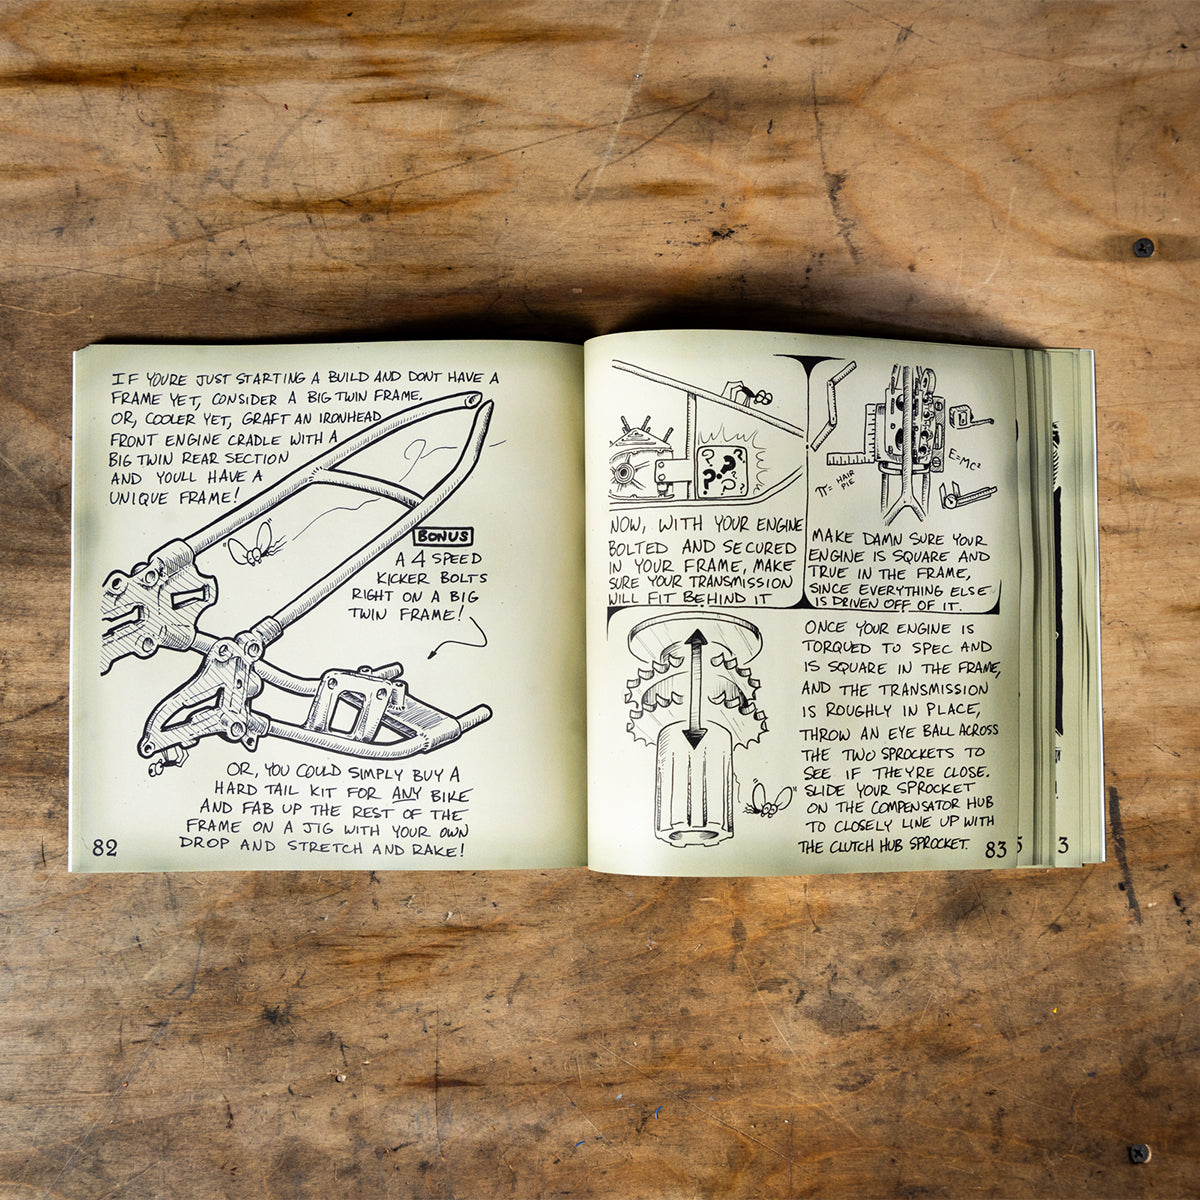 IF YOURE JUST STARTING A BUILD AND DONT HAVE A
FRAME YET, CONSIDER A BIG TWIN FRAME.
OR, COOLER YET, GRAFT AN IRONHEAD
FRONT ENGINE CRADLE WITH A
BIG TWIN REAR SECTION
AND YOULL HAVE A
UNIQUE FRAME!
BONUS
A 4 SPEED
KICKER BOLTS
RIGHT ON A BIG
TWIN FRAME!
OR, YOU COULD SIMPLY BUY A
HARD TAIL KIT FOR ANY BIKE
AND FAB UP THE REST OF THE
FRAME ON A JIG WITH YOUR OWN
DROP AND STRETCH AND RAKE!
82
? ? ? ? ?
NOW, WITH YOUR ENGINE
BOLTED AND SECURED
IN YOUR FRAME, MAKE
SURE YOUR TRANSMISSION
WILL FIT BEHIND IT
E=MC²
π = HAIR
PIE
MAKE DAMN SURE YOUR
ENGINE IS SQUARE AND
TRUE IN THE FRAME,
SINCE EVERYTHING ELSE
IS DRIVEN OFF OF IT.
ONCE YOUR ENGINE IS
TORQUED TO SPEC AND
IS SQUARE IN THE FRAME,
AND THE TRANSMISSION
IS ROUGHLY IN PLACE,
THROW AN EYE BALL ACROSS
THE TWO SPROCKETS TO
SEE IF THEYRE CLOSE.
SLIDE YOUR SPROCKET
ON THE COMPENSATOR HUB
TO CLOSELY LINE UP WITH
THE CLUTCH HUB SPROCKET.
83
5
3